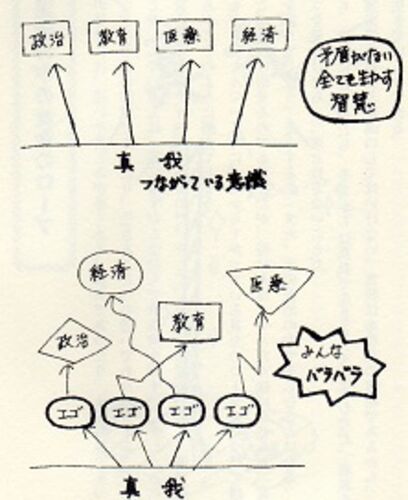 政治 教育 医療 経済
矛盾がない
全てを生かす
智慧
真 我
つながっている意識
経済
医療
教育
政治
みんな
バラバラ
エゴ エゴ エゴ エゴ
真 我